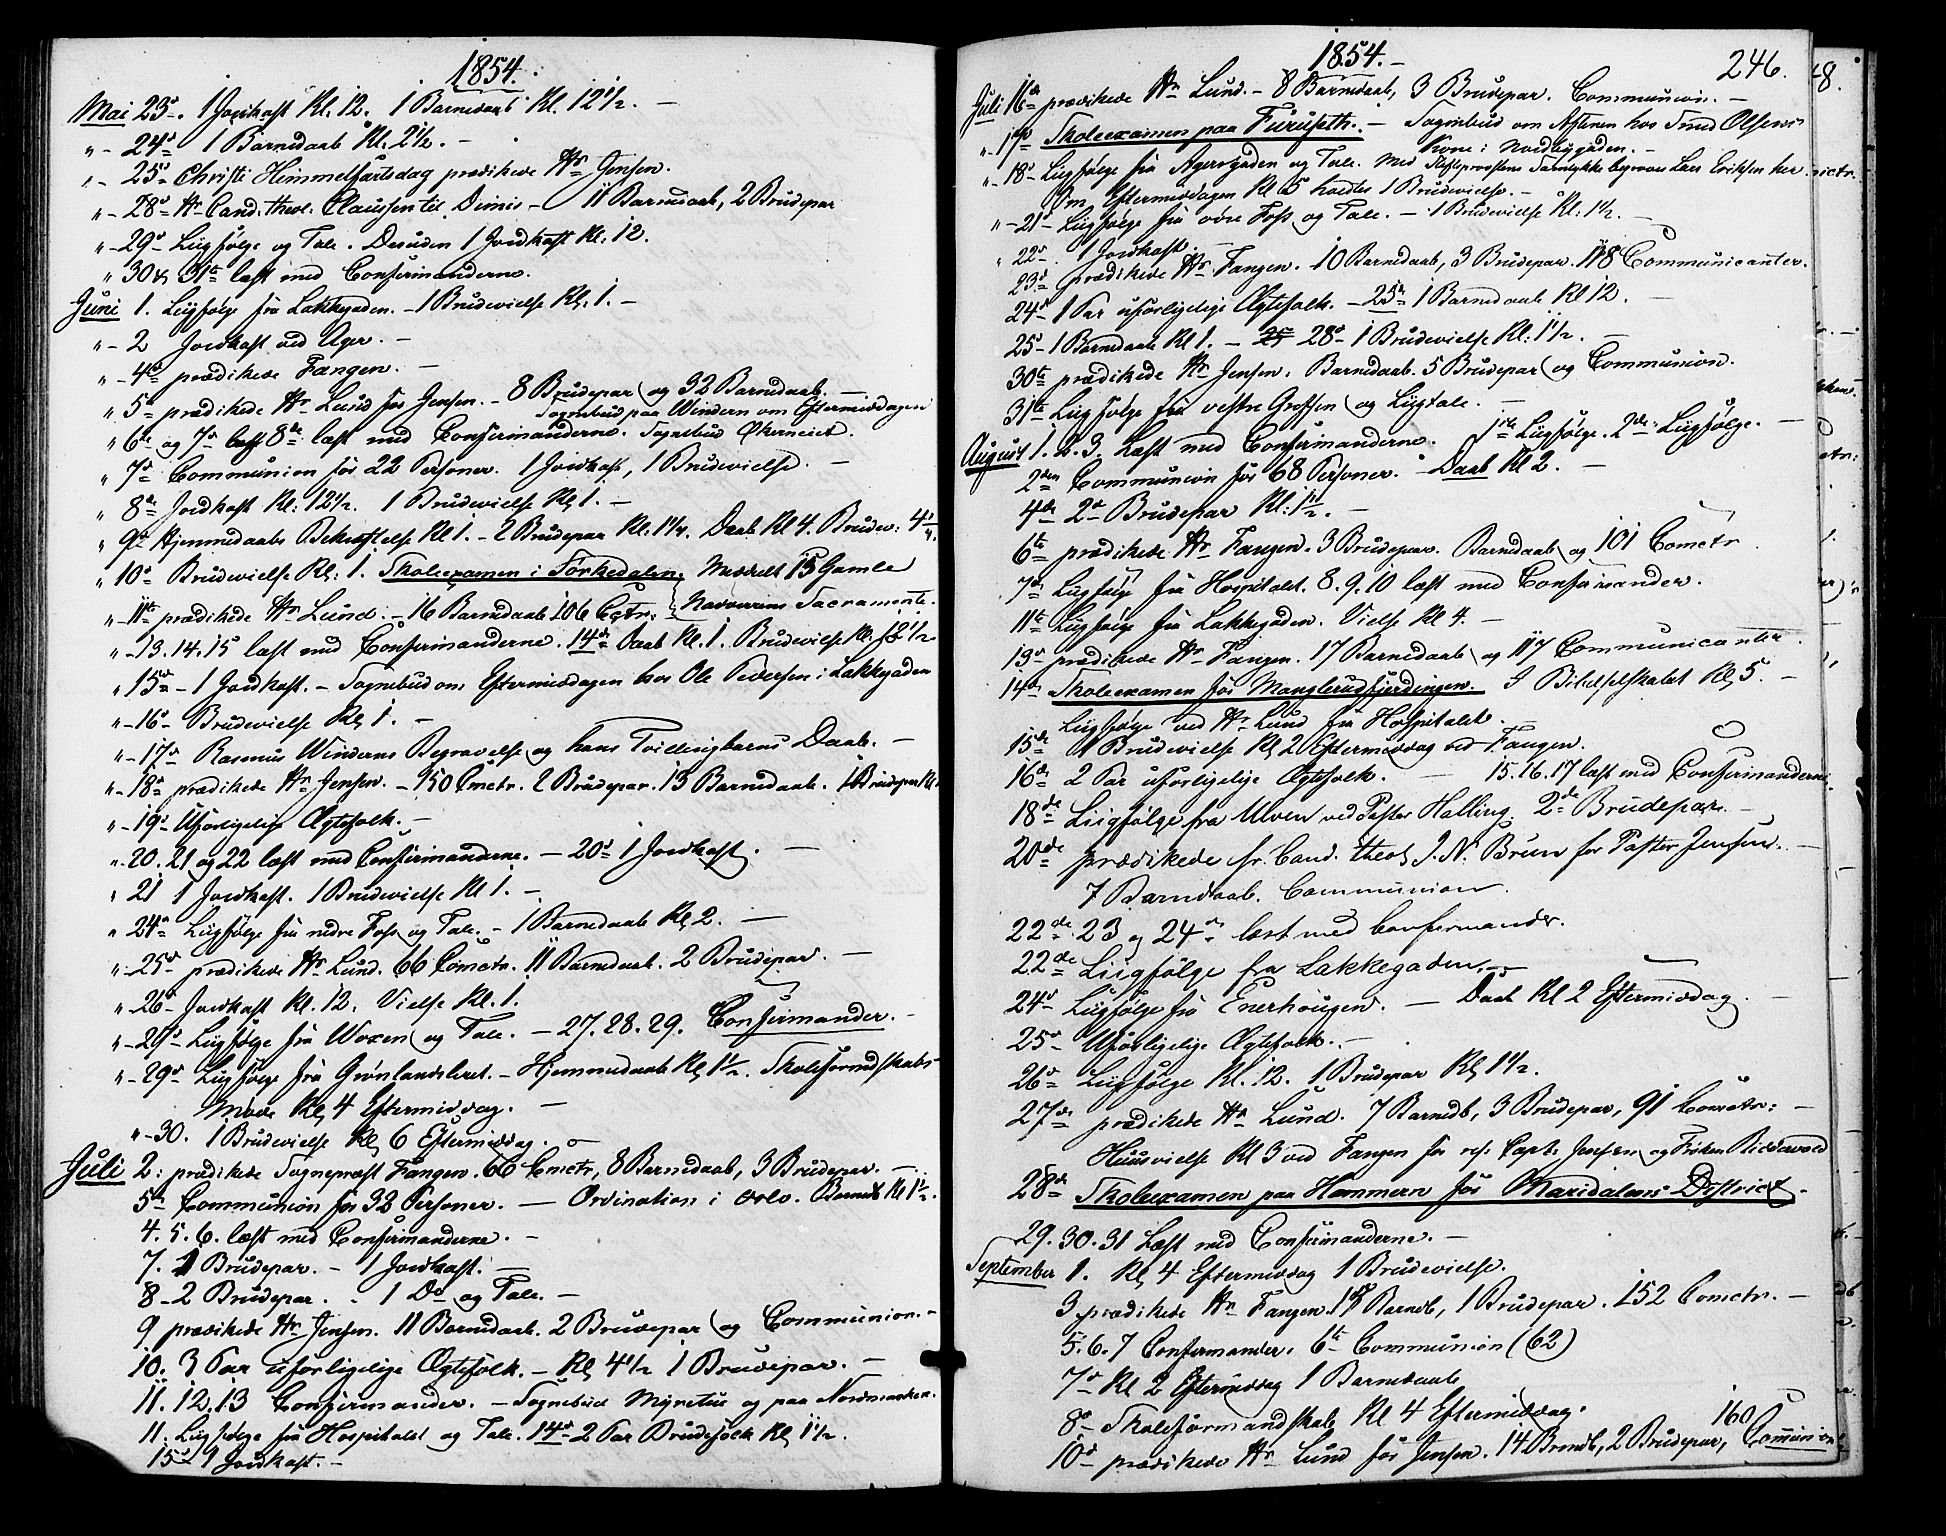 1854.
Mai 23de. 1 Jordkast Kl. 12. 1 Barnedaab Kl. 12 1/2. —
" - 24de 1 Barnedaab Kl. 2 1/2. —
" - 25de Christi Himmelfartsdag prædikede Hr Jensen.
" - 28de Hr Cand. theol. Clausen til Dimis - 11 Barnedaab, 2 Brudepar
" - 29de Liigfølge og Tale. Desuden 1 Jordkast Kl. 12.
" 30 & 31te læst med Confirmanderne.
Juni 1. Liigfølge fra Lakkegaden. - 1 Brudevielse Kl. 1. —
" - 2 Jordkast ved Ager. —
" - 4de prædikede Fangen. —
" 5te prædikede Hr Lund for Jensen. - 8 Brudepar og 32 Barnedaab. —
Sognebud paa Windern om Eftermiddagen
" 6te og 7de læst 8de læst med Confirmanderne. Sognebud Økerneiet.
" 7de Communion for 22 Personer. 1 Jordkast, 1 Brudevielse. —
" 8de Jordkast Kl. 12 1/2. 1 Brudevielse Kl. 1. —
" 9de Hjemmedaabs Bekræftelse Kl 1. - 2 Brudepar Kl. 1 1/4. Daab Kl 4. Brudev: 4
" 10de Brudevielse Kl. 1. Skoleexamen i Sørkedalen, Meddelt 15 Gamle
" - 11te prædikede Hr Lund. - 16 Barnedaab 106 Cmctr. Nadverens Sacramente.
" - 13. 14. 15 læst med Confirmanderne. 14de Daab Kl. 1. Brudevielse Kl. 1/2
" 15de - 1 Jordkast. - Sognebud om Eftermiddagen hos Ole Pedersen i Lakkegaden
" - 16de Brudevielse Kl 1. —
" - 17de Rasmus Winderns Begravelse og hans Tvillingbarns Daab. —
" - 18de prædikede Hr Jensen. - 150 Cmctr. 2 Brudepar. 13 Barnedaab. 1 Brudepar Kl
" - 19de Uforligelige Ægtefolk. —
" - 20. 21 og 22 læst med Confirmanderne. — 20de 1 Jordkast. —
" 21 1 Jordkast. 1 Brudevielse Kl 1. —
" 24de Liigfølge fra nedre Foss og Tale. - 1 Barnedaab Kl 2. —
" - 25de prædikede Hr Lund. 66 Cometr. 11 Barnedaab. 2 Brudepar. —
" - 26de Jordkast Kl. 12. Vielse Kl. 1.
" - 29de Liigfølge fra Woxen og Tale. — 27. 28. 29. Confirmander. —
" - 29de Liigfølge fra Grønlandsleret. - Hjemmedaab Kl 1 1/2. Skoleformandskabs-
Møde Kl 4 Eftermiddag. —
" - 30. 1 Brudevielse Kl 6 Eftermiddag. —
Juli 2: prædikede Sognepræst Fangen. 66 Cmctr, 8 Barnedaab, 3 Brudepar. —
5te Communion for 32 Personer. — Ordination i Oslo. Barned. Kl 1 1/2.
4. 5. 6. læst med Confirmanderne. —
7. 1 Brudepar. - 1 Jordkast. —
8 - 2 Brudepar. - 1 Do og Tale. —
9 prædikede Hr Jensen. 11 Barnedaab. 2 Brudepar og Communion. —
10. 3 Par uforligelige Ægtefolk. — Kl 4 1/2 1 Brudepar. —
11. 12. 13 Confirmander. — Sognebud Myretue og paa Nordmarken.
11. Liigfølge fra Hospitalet og Tale. 14de 2 Par Brudefolk Kl 1 1/2.
15de 1 Jordkast. —
1854. —
246.
Juli 16de prædikede Hr Lund. - 8 Barnedaab, 3 Brudepar. Communion. —
" - 17de Skoleexamen paa Furuseth. — Sognebud om Aftenen hos Smed Olsens
Kone i Nordbygaden. —
" - 18de Liigfølge fra Agersgaden og Tale. Med Stiftsprovstens Samtykke begroves Lars Eriksen her
Om Eftermiddagen Kl 5 holdtes 1 Brudevielse. —
" - 21de Liigfølge fra øvre Foss og Tale. — 1 Brudevielse Kl. 1 1/2. —
" 22de. 1 Jordkast. —
23de prædikede Hr Fangen. 10 Barnedaab, 3 Brudepar. 118 Communicanter.
24de 1 Par uforligelige Ægtefolk. — 25de 1 Barnedaab Kl 12. —
25 - 1 Barnedaab Kl 1. — 28de - 1 Brudevielse Kl. 1 1/2. —
30te prædikede Hr Jensen. Barnedaab. 5 Brudepar og Communion.
31te Liigfølge fra vestre Grefsen og Liigtale. —
August 1. 2. 3. Læst med Confirmanderne. 1ste Liigfølge. 2de Liigfølge. —
2den Communion for 68 Personer. - Daab Kl 2. —
4de 2de Brudepar Kl: 1 1/2. —
6te prædikede Hr Fangen. 3 Brudepar. Barnedaab og 101 Cometr.
7de Liigfølge fra Hospitalet. 8. 9. 10 læst med Confirmander.
11te Liigfølge fra Lakkegaden. Vielse Kl 4. —
13de prædikede Hr Fangen. 17 Barnedaab og 117 Communicanter.
14de Skoleexamen for Manglerudfjerdingen. I Bibelselskabet Kl 5. —
Liigfølge ved Hr Lund fra Hospitalet.
15de 1 Brudevielse Kl 2 Eftermiddag ved Fangen.
16de 2 Par uforligelige Ægtefolk. — 15. 16. 17 læst med Confirmanderne.
18de Liigfølge fra Ulven ved Pastor Halling. 2de Brudepar. —
20de prædikede hr. Cand. theol J. N. Brun for Pastor Jensen. —
7 Barnedaab. Communion.
22de 23 og 24de læst med Confirmander.
22de Liigfølge fra Lakkegaden. —
24de Liigfølge fra Enerhougen. — Daab Kl 2 Eftermiddag. —
25de Uforligelige Ægtefolk. —
26de Liigfølge Kl. 12. 1 Brudepar Kl 1 1/2.
27de prædikede Hr Lund. 7 Barnedb, 3 Brudepar, 91 Cometr: —
Huusvielse Kl 3 ved Fangen for Capt. Jensen og Frøken Riddervold
28de Skoleexamen paa Hammern for Maridalens District. —
29. 30. 31 Læst med Confirmanderne. —
September 1. Kl 4 Eftermiddag 1 Brudevielse.
3 prædikede Hr Fangen. Barnedb, 1 Brudepar. 152 Cometr. —
5. 6. 7 Confirmander. 6te Communion (62)
7de Kl 2 Eftermiddag 1 Barnedaab
8de Skoleformandskab Kl 4 Eftermiddag.
10de prædikede Hr Lund for Jensen. 14 Barnedb, 2 Brudepar, 160 Comunion